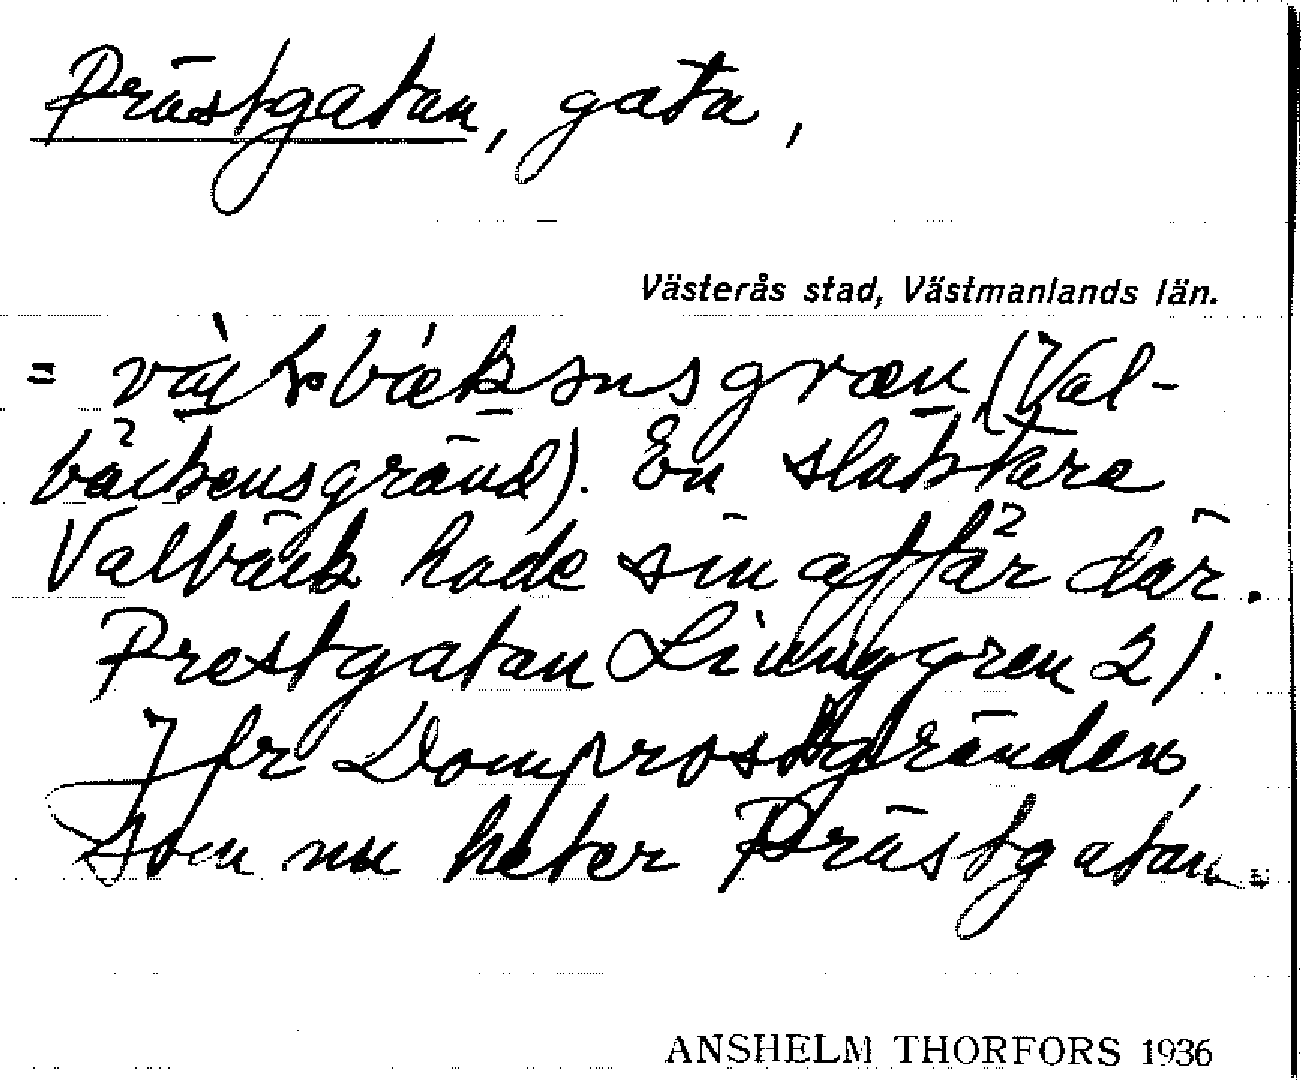 Prästgatan, gata,
Västerås stad, Västmanlands län.
= bæksnsgræn (Val-
bäckensgränd). En slaktare
Valbäck hade sin affär där.
Prestgatan Linnggren 2).
Jfr Domprostgränden
som nu heter Prästgatan.
ANSHELM THORFORS 1936